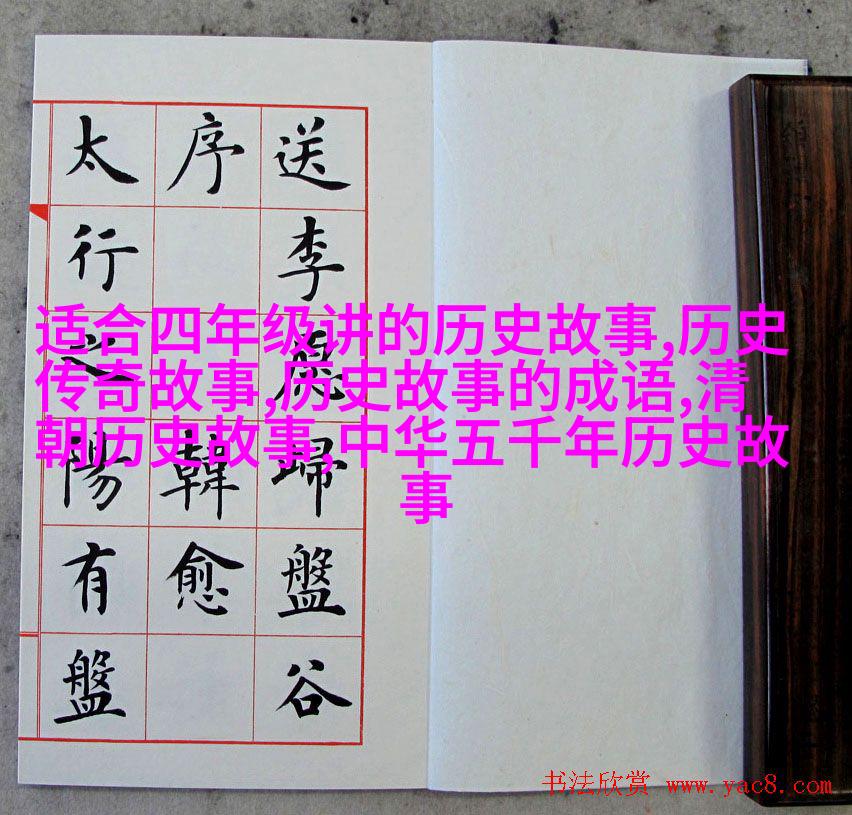 送李愿歸盤谷
序韓愈
太行之陽有盤
适合四年级讲的历史故事,历史
传奇故事,历史故事的成语,清
朝历史故事,中华五千年历史故
事
书法欣赏 www.yac8.com